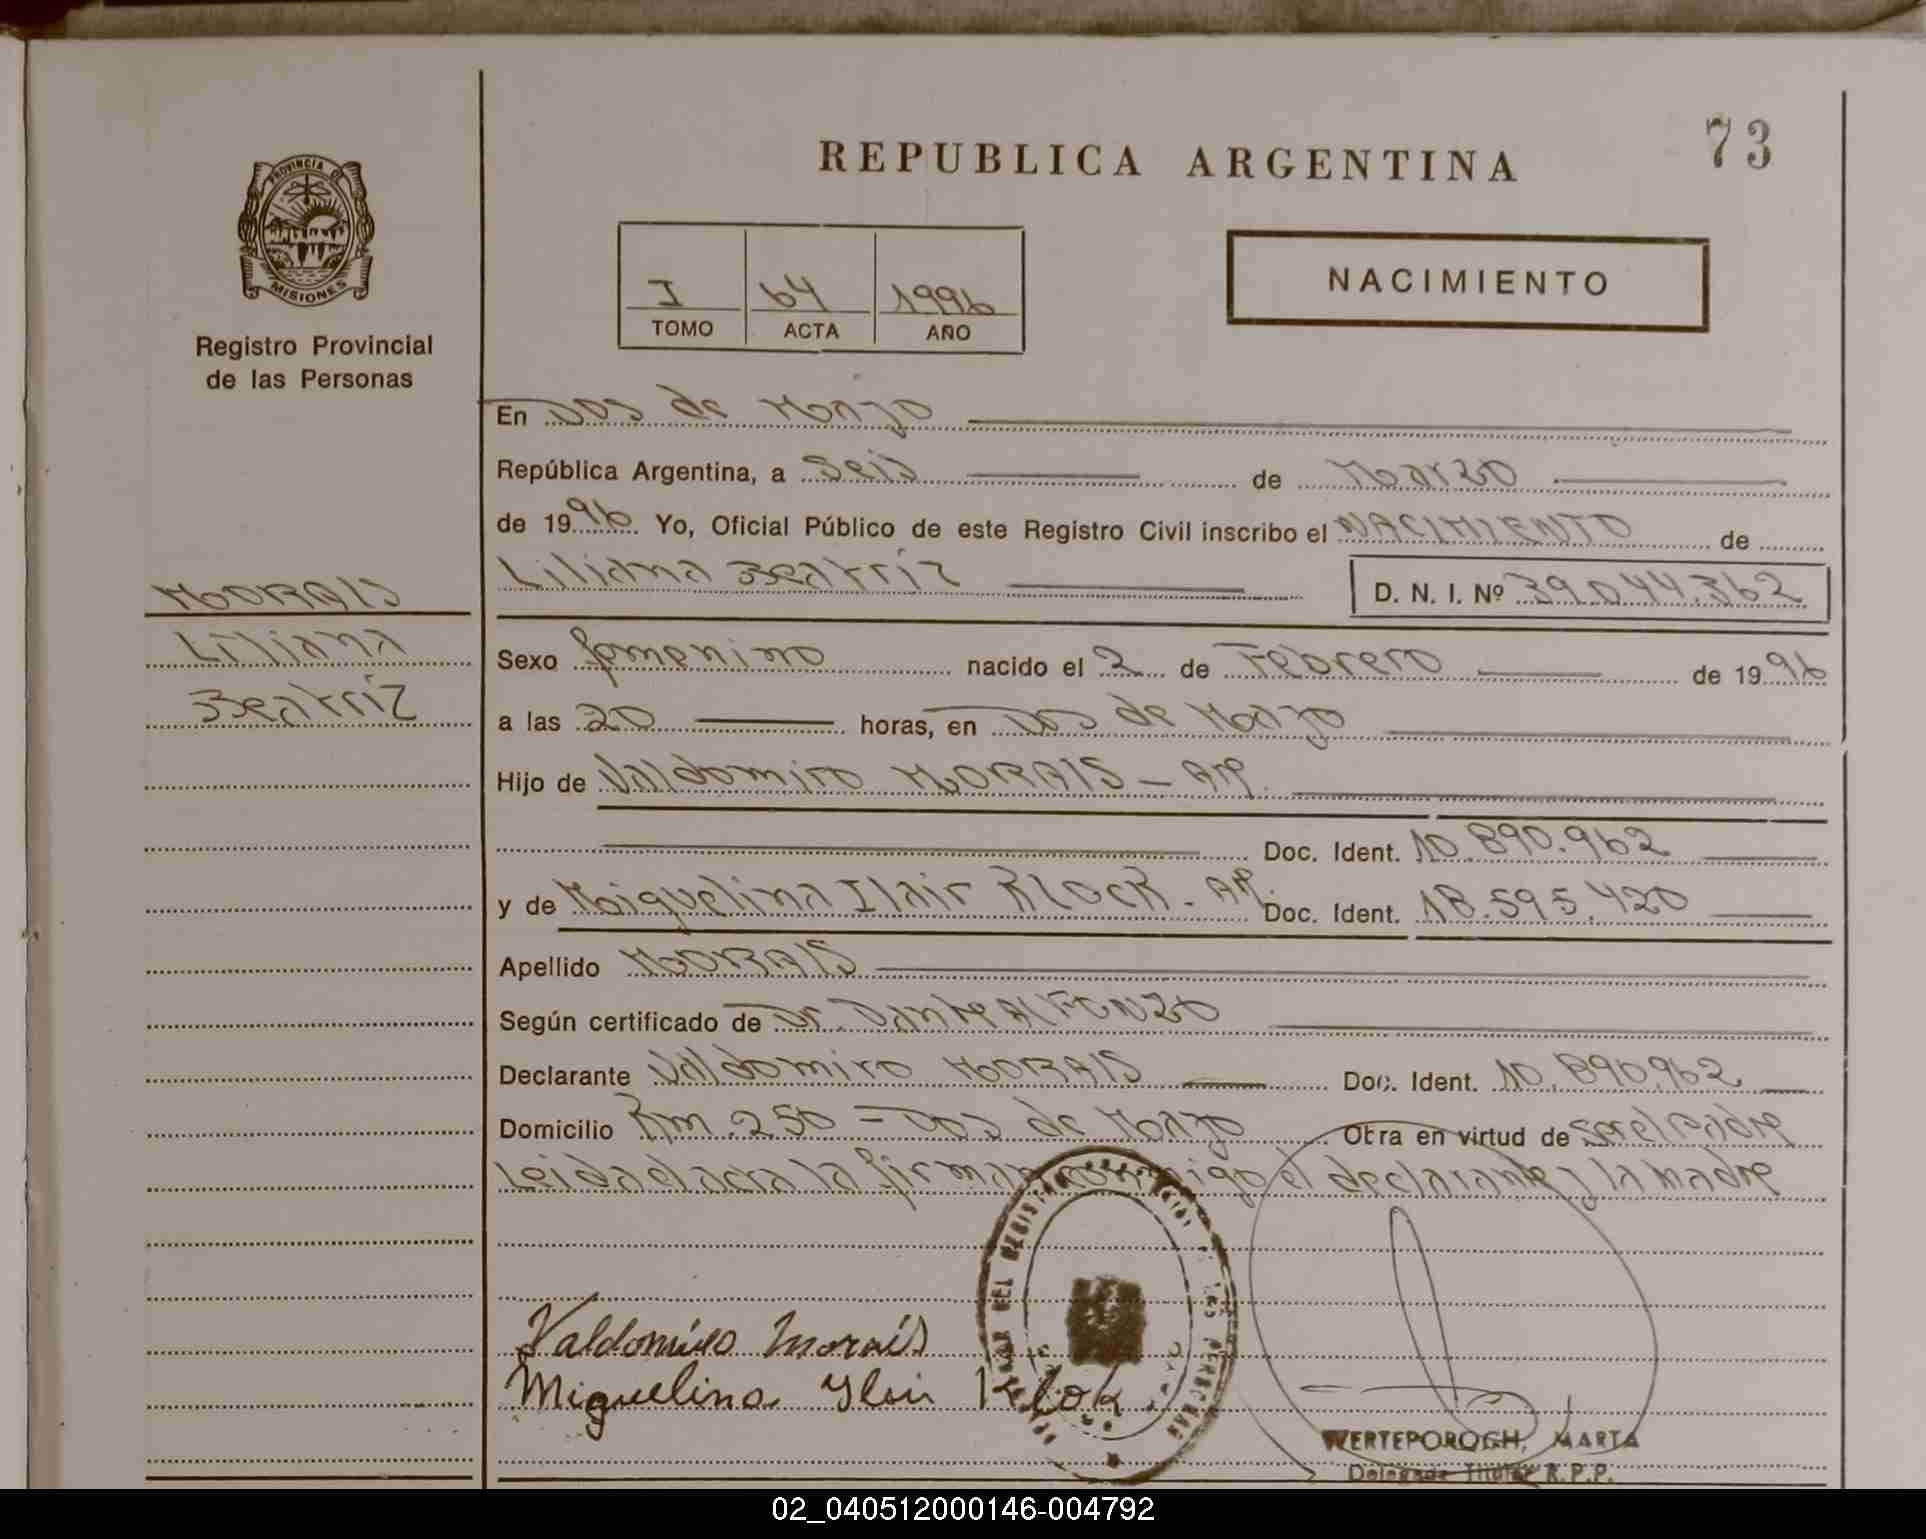 73
REPUBLICA ARGENTINA
PROVINCIA DE
MISIONES
Registro Provincial
de las Personas
NACIMIENTO
I 64 1996
TOMO ACTA AÑO
En Dos de Mayo
República Argentina, a Seis de Marzo
de 1996 Yo, Oficial Público de este Registro Civil inscribo el NACIMIENTO de
Liliana Beatriz D. N. I. Nº 39.044.362
MORAIS
Liliana
Beatriz
Sexo femenino nacido el 2 de Febrero de 1996
a las 20 horas, en Dos de Mayo
Hijo de Valdomiro MORAIS - Arg.
Doc. Ident. 10.890.962
y de Miguelina Ilair KlocK - Arg. Doc. Ident. 18.595.420
Apellido MORAIS
Según certificado de Dr. Dante AlFONZO
Declarante Valdomiro MORAIS Doc. Ident. 10.890.962
Domicilio Km. 250 = Dos de Mayo Otra en virtud de ser el padre
Leida el acta la firman conmigo el declarante y la madre
Valdomiro Morais
Miguelina Ilair Klok.
WERTEPOROGH, MARTA
Delegada Titular R.P.P.
02_040512000146-004792